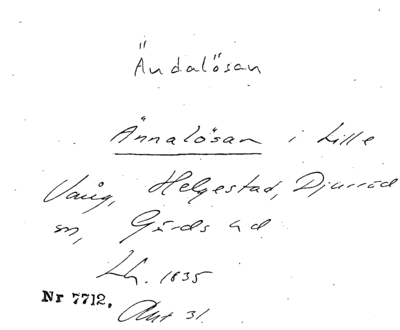 Ändalösan
Ännalösan i Lille
Vång, Helgestad, Djurröd
sn, Gärds hd
Lh. 1835
Nr 7712. Akt 31.